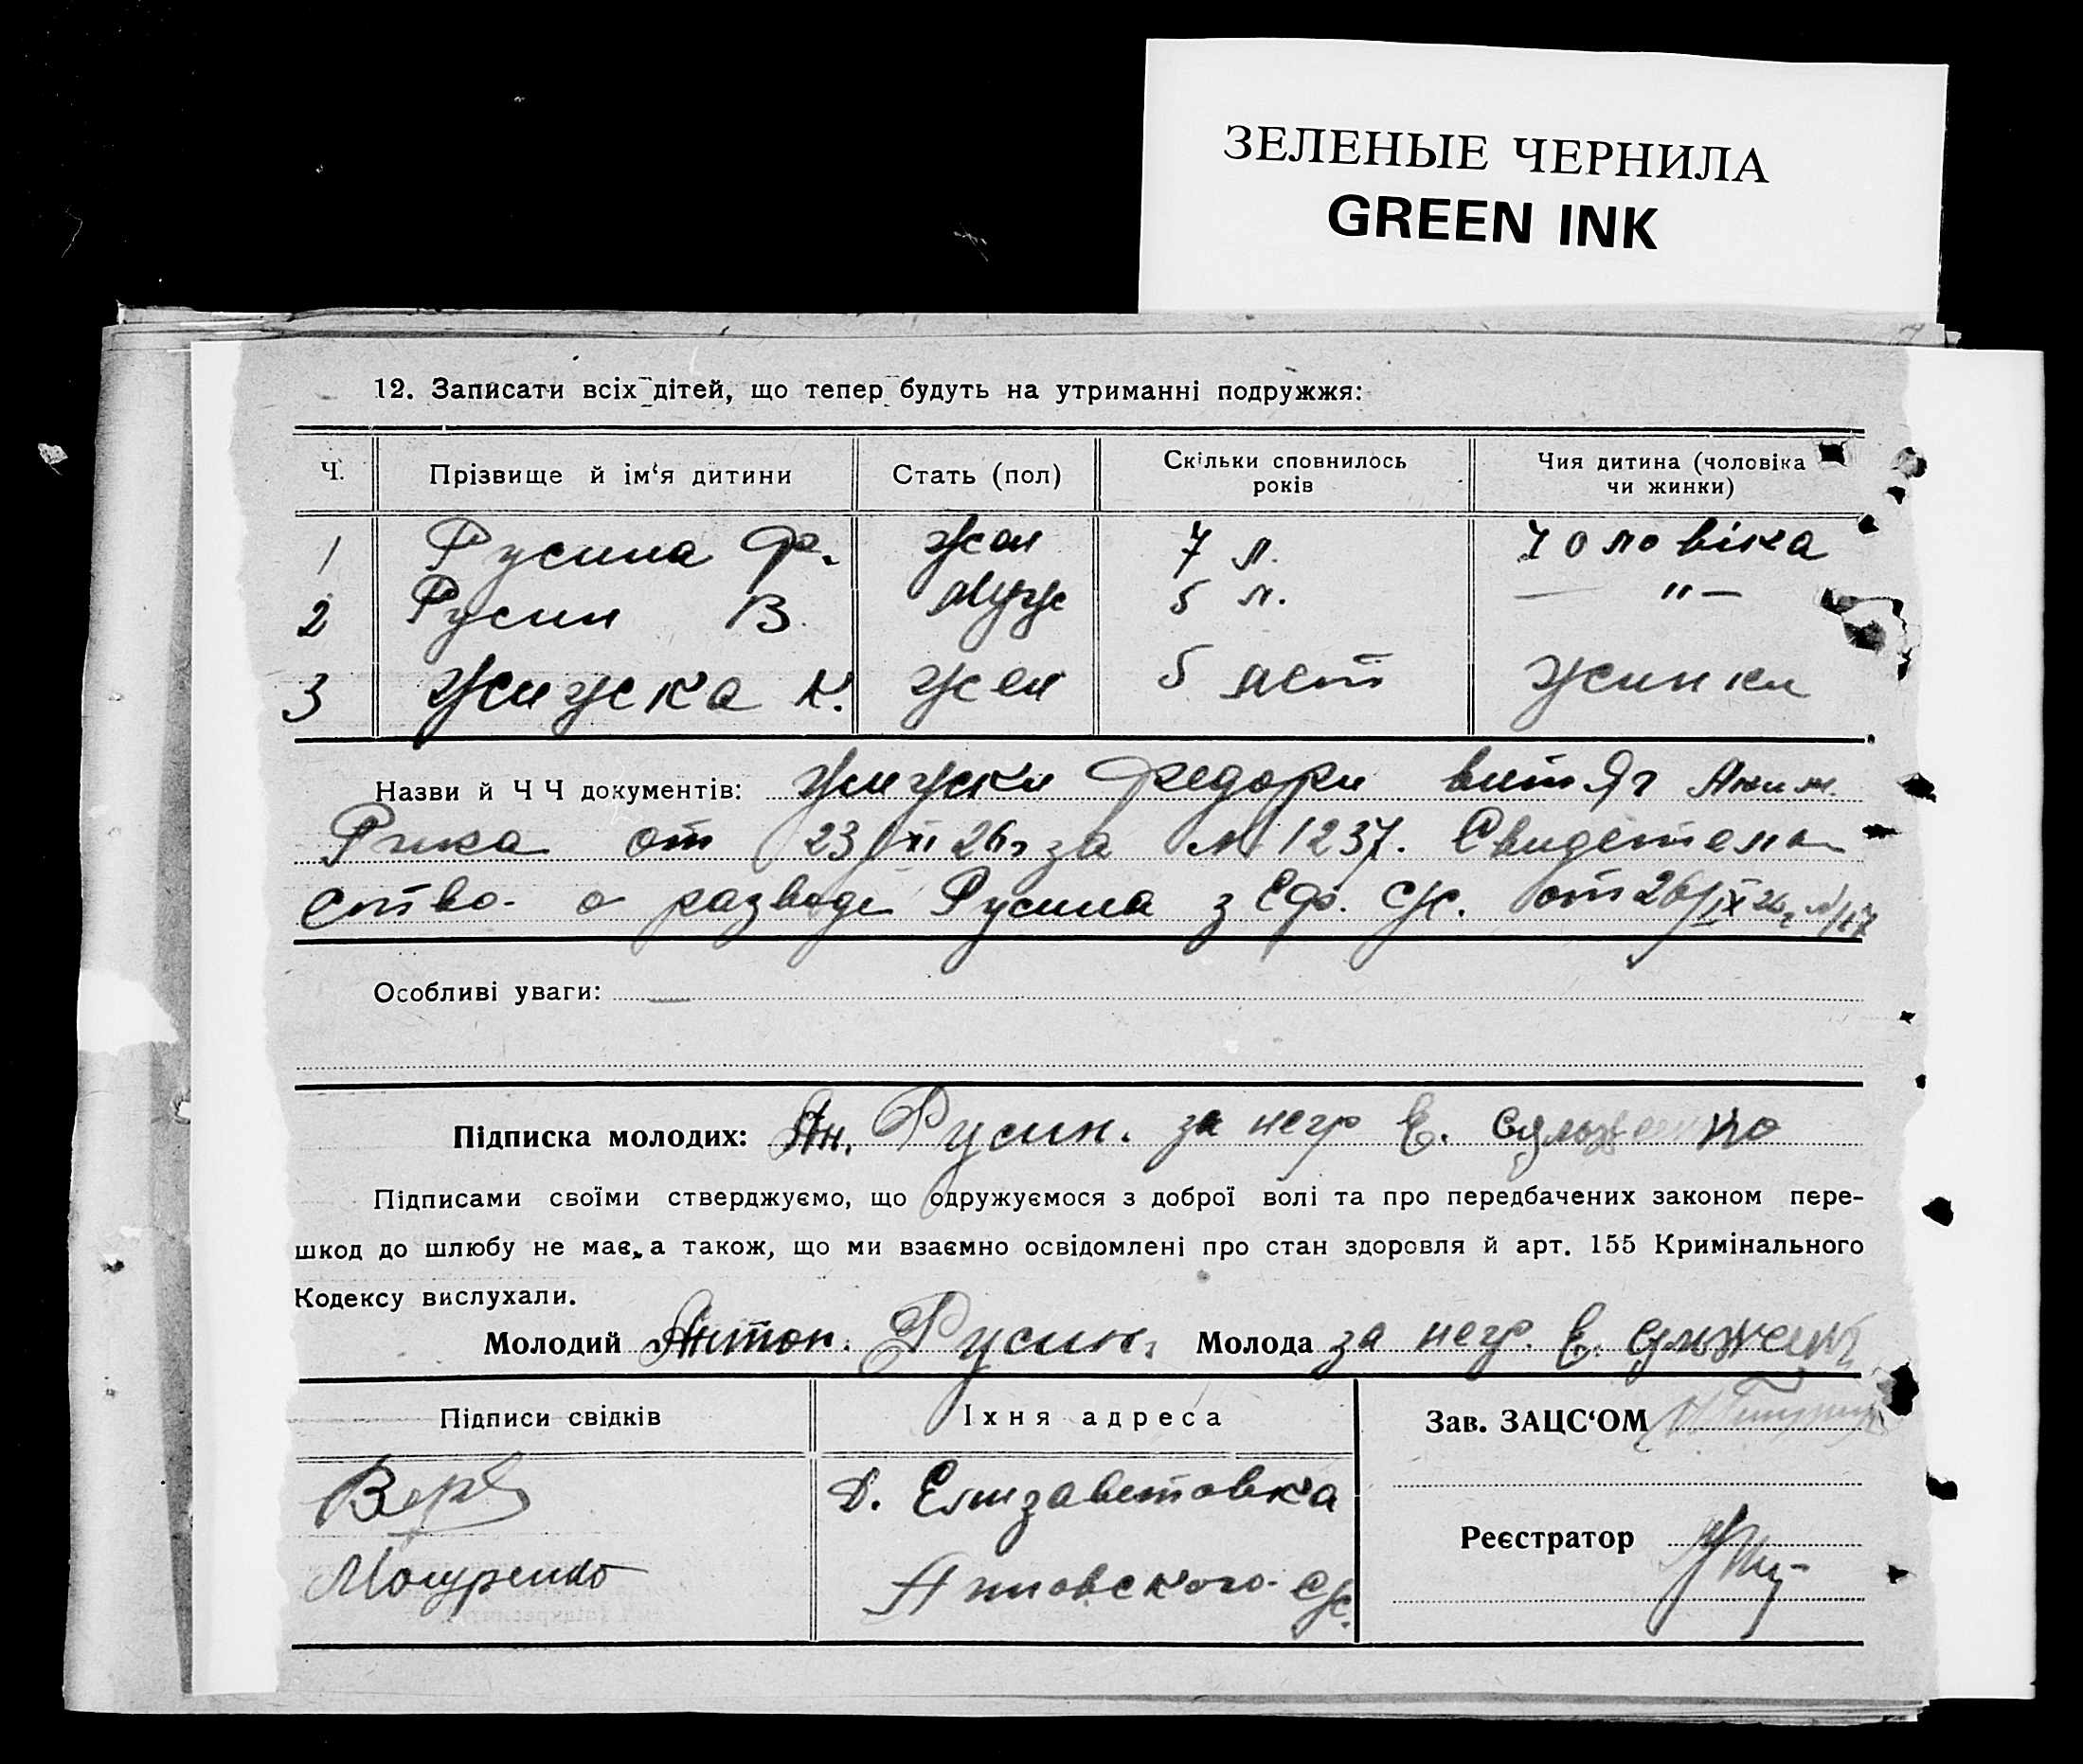 ЗЕЛЕНЫЕ ЧЕРНИЛА
GREEN INK
12. Записати всіх дітей, що тепер будуть на утриманні подружжя:
Ч. Прізвище й ім‘я дитини Стать (пол) Скільки сповнилось років Чия дитина (чоловіка чи жинки)
1 Русина Ф. жен 7 л. Чоловіка
2 Русин В. муж 5 л. — " —
3 К. жен 5 лет жинки
Назви й Ч Ч документів: Федори витяг
от 23/XI 26 г за № 1237. Свидетель
ство о разводе Русина з Еф. с/с. от 26/IX 26 г №
Особливі уваги: —
Підписка молодих: Ан. Русин. за негр Е.
Підписами своїми стверджуємо, що одружуємося з доброї волі та про передбачених законом пере-
шкод до шлюбу не має, а також, що ми взаємно освідомлені про стан здоровля й арт. 155 Кримінального
Кодексу вислухали.
Молодий Антон. Русин. Молода за негр. Е.
Підписи свідків Їхня адреса Зав. ЗАЦС‘ОМ
Д. Елизаветовка
Реєстратор
с/с.